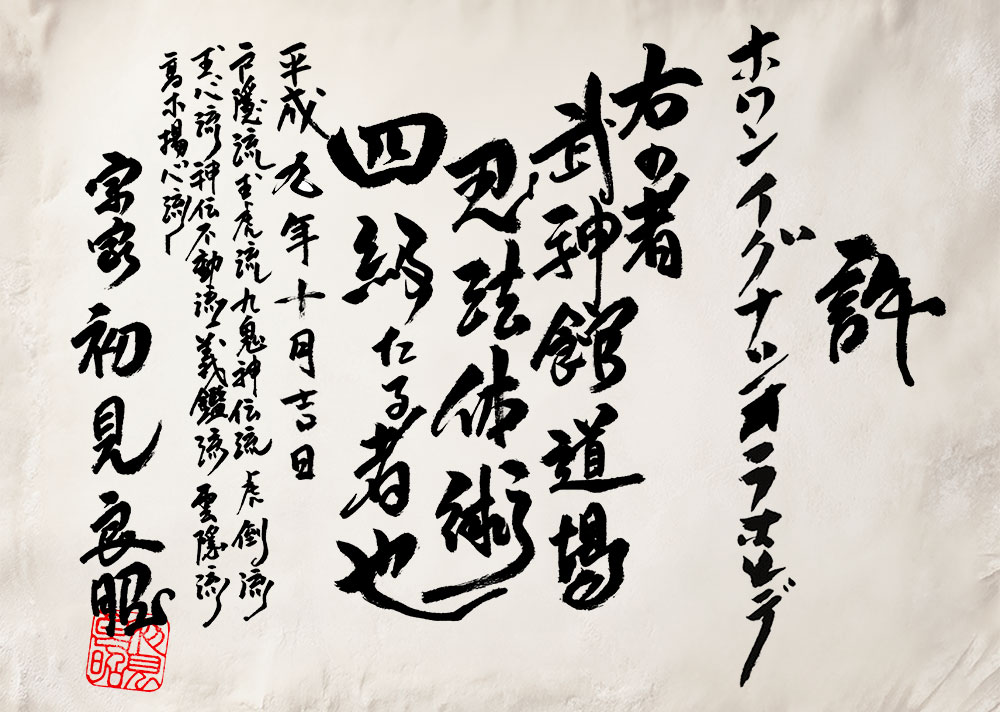 許
ホワン イグナシオ ラホセデ
右の者
武神館道場
忍法体術
四級たる者也
平成九年十月吉日
戸隠流 玉虎流 九鬼神伝流 虎倒流
玉心流 神伝不動流 義鑑流 雲隠流
高木揚心流
宗家 初見良昭